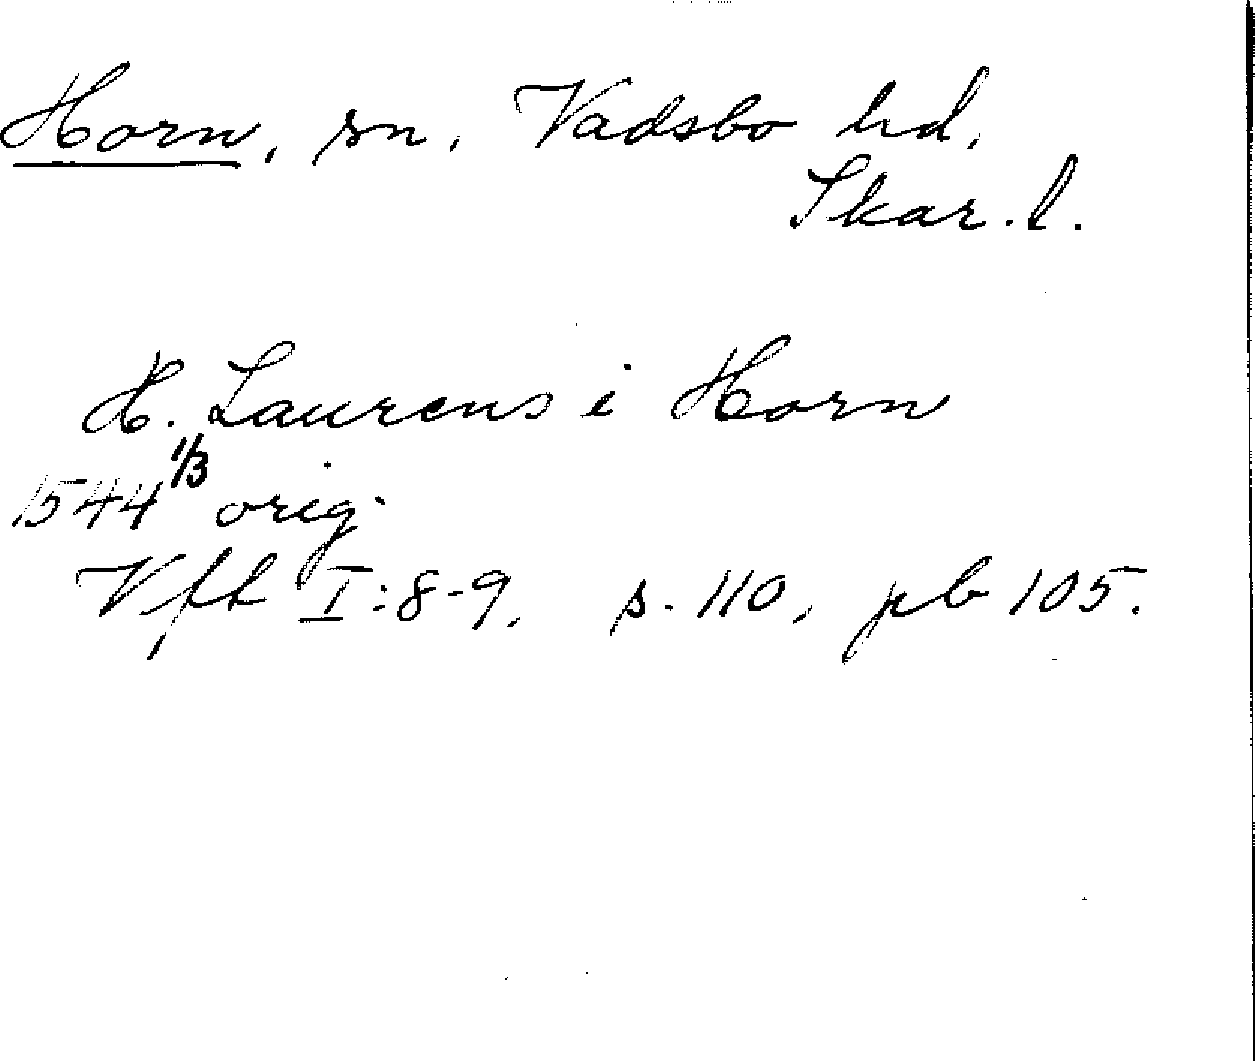 Horn, sn, Vadsbo hd,
Skar. l.
H. Laurens i Horn
1544 1/3 orig.
Vft I:8-9, s. 110, pb 105.